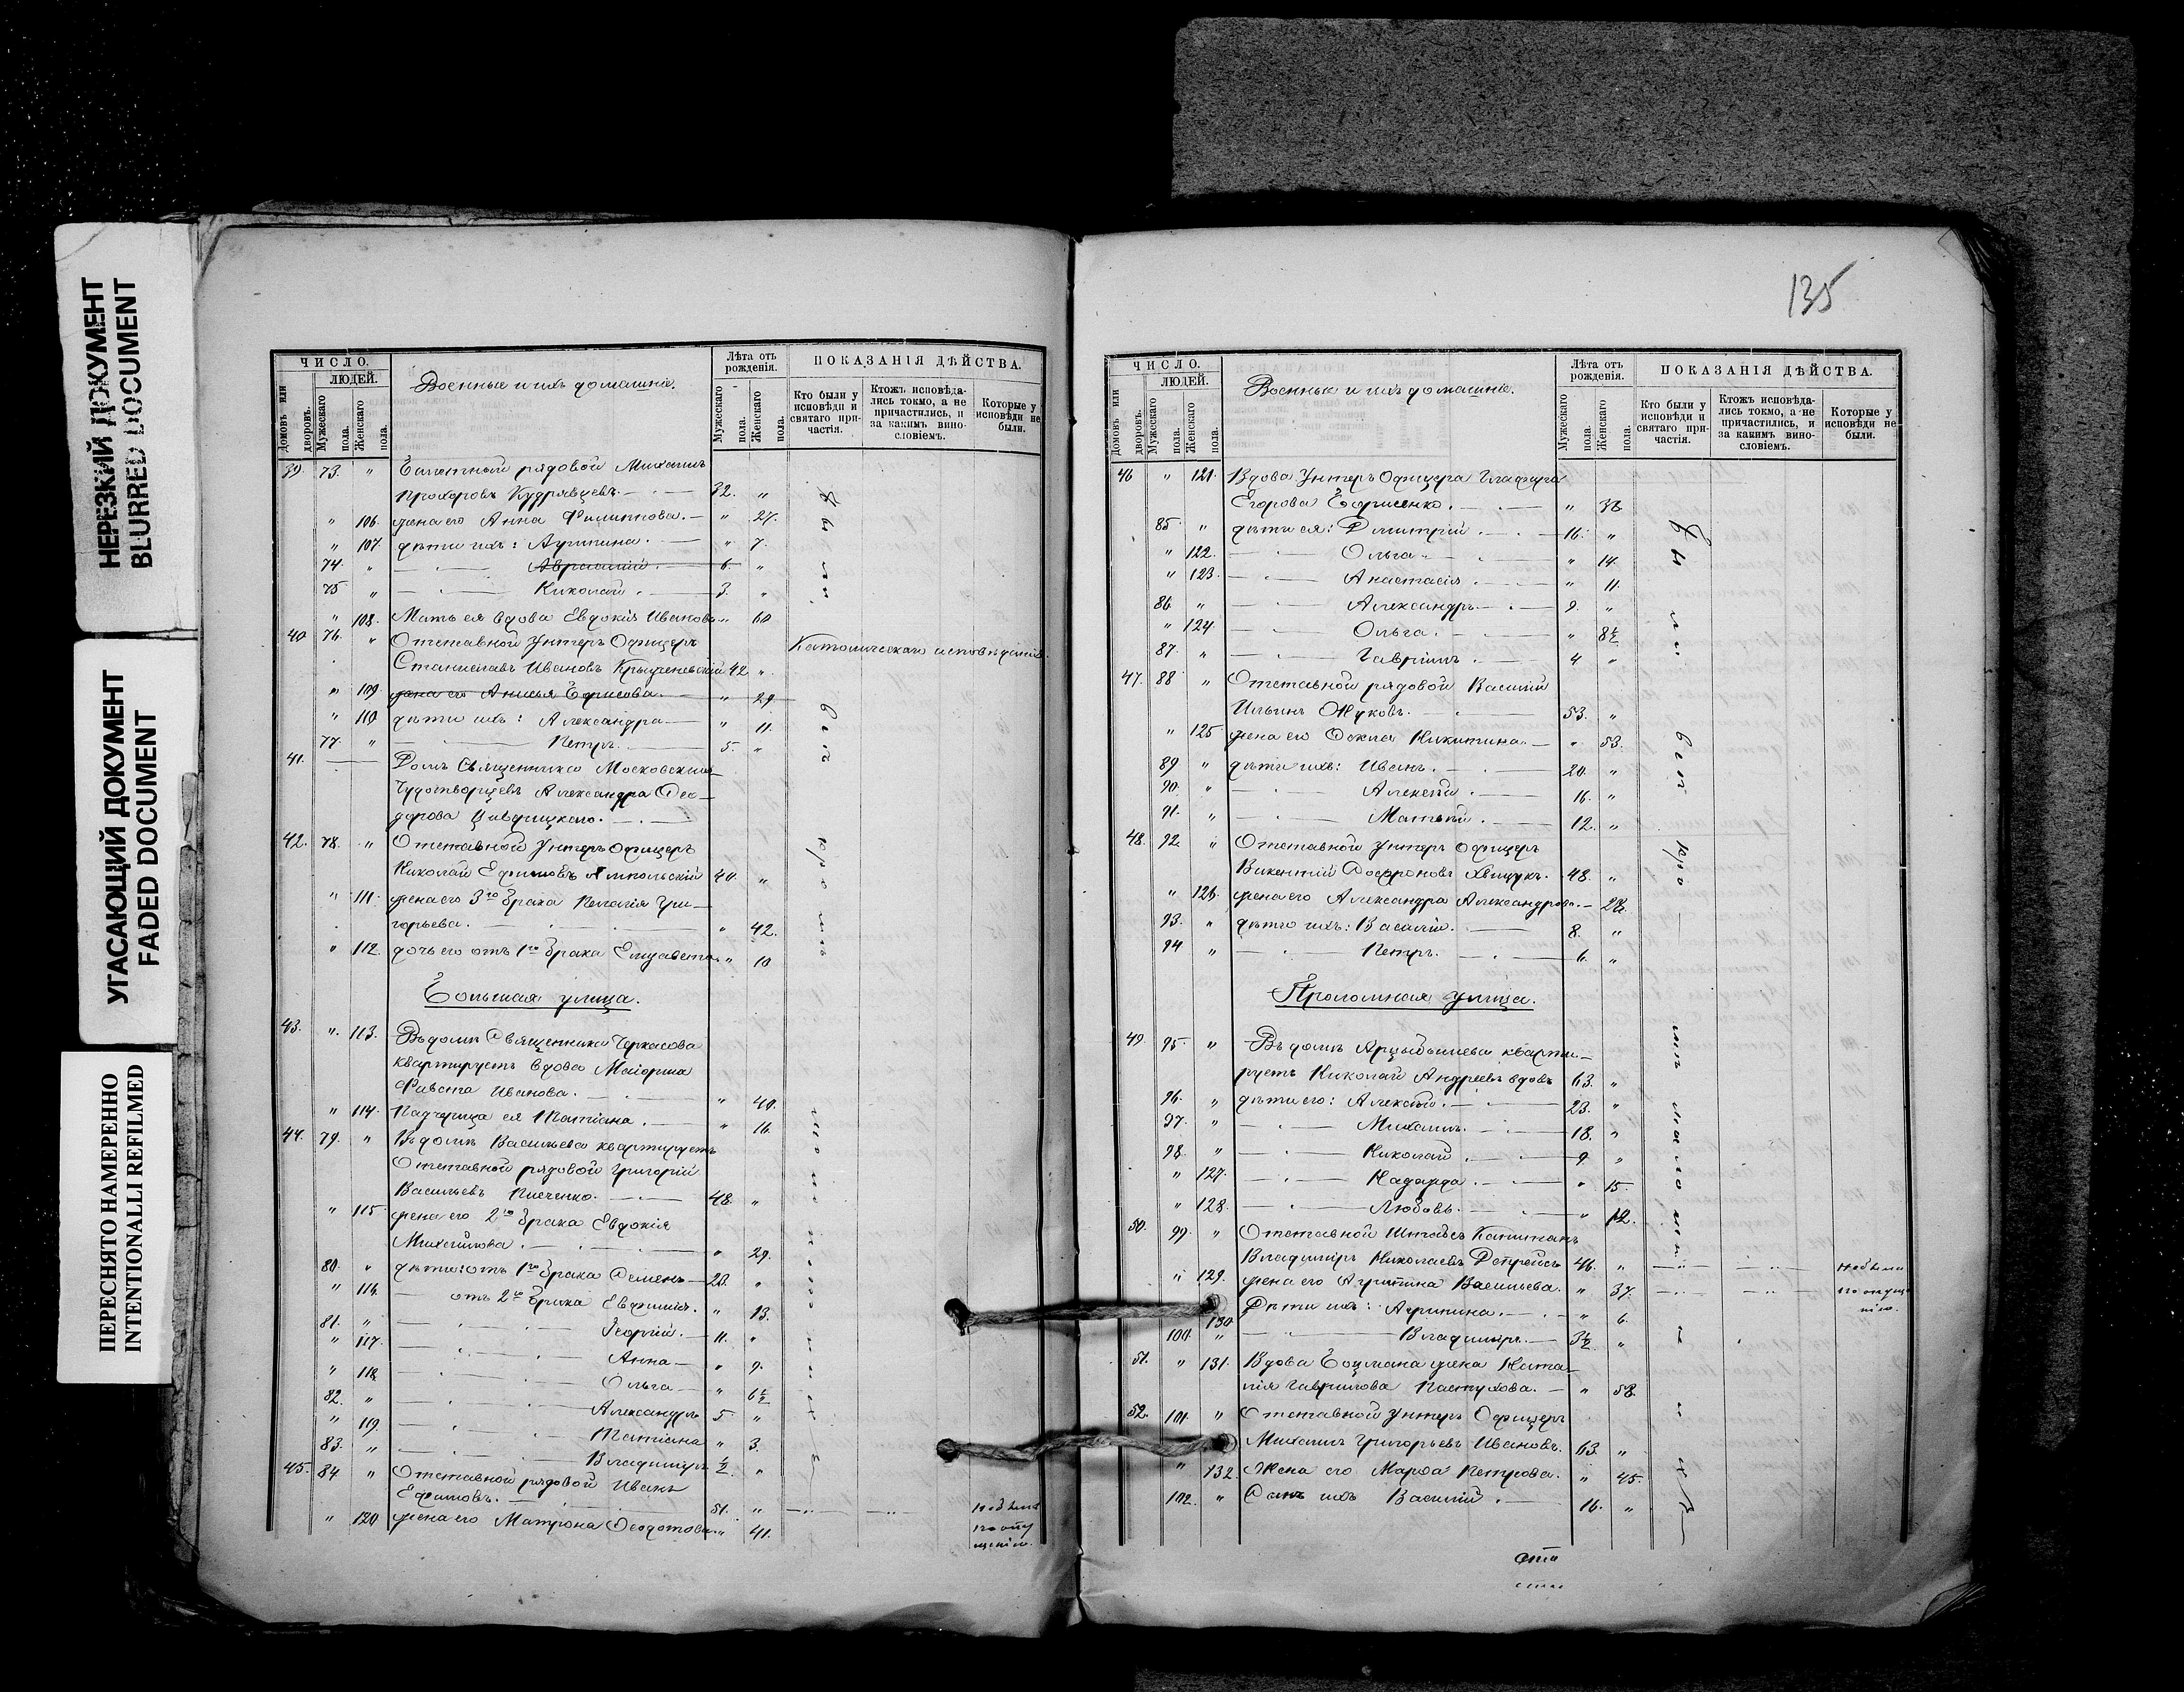 НЕРЕЗКИЙ ДОКУМЕНТ
BLURRED DOCUMENT
УГАСАЮЩИЙ ДОКУМЕНТ
FADED DOCUMENT
ПЕРЕСНЯТО НАМЕРЕННО
INTENTIONALLI REFILMED
ЧИСЛО.
ЛЮДЕЙ.
Домовъ или дворовъ.
Мужескаго пола.
Женскаго пола.
Военные и ихъ домашніе.
Лѣта отъ рожденія.
Мужескаго пола.
Женскаго пола.
ПОКАЗАНІЯ ДѢЙСТВА.
Кто были у исповѣди и святаго причастія.
Ктожъ исповѣдались токмо, а не причастились, и за какимъ винословіемъ.
Которые у исповѣди не были.
39. 73. " Билетный рядовой Михаилъ
Прохоровъ Кудрявцевъ. 32. "
" 106. жена его Анна Филиппова. " 27.
" 107. дѣти ихъ: Агрипина. " 7.
74. " Аврамій. 6. "
75 " Николай. 3. "
" 108. Мать ея вдова Евдокія Иванова " 60
40 76. " Отставной Унтеръ Офицеръ
Католическаго исповѣданія.
Станиславъ Ивановъ 42 "
" 109 жена его Анисья Борисова. " 29
" 110 дѣти ихъ: Александра " 11.
77. " Петръ. 5. "
41. Домъ Священника Московскихъ
Чудотворцевъ Александра Ѳео-
дорова
42. 78. " Отставной Унтеръ Офицеръ
Николай Ефимовъ 40. "
" 111. жена его 3го брака Пелагія Гри-
горьева. " 42.
" 112. дочь его отъ 1го брака Елизавета " 10
Большая улица.
43. " 113. Въ домѣ Священника Черкасова
квартируетъ вдова Маіорша
Фавста Иванова. " 40.
" 114. Падчерица ея Татіана. " 16.
44. 79. " Въ домѣ Васильева квартируетъ
Отставной рядовой Григорій
Васильевъ 48. "
" 115 жена его 2го брака Евдокія
Михайлова. " 29.
80. " дѣти: отъ 1го брака Семенъ 20. "
" 116. отъ 2го брака Евфимія. " 13.
81. " Георгій. 11. "
" 117. Анна " 9.
" 118 Ольга " 6½
82. " Александръ 5 "
" 119. Татіана " 3.
83. " Владиміръ ½ "
45. 84 " Отставной рядовой Иванъ
Ефимовъ. 51. " не были
" 120 жена его Матрона Ѳеодотова " 41. по опу
щенію.
135
ЧИСЛО.
ЛЮДЕЙ.
Домовъ или дворовъ.
Мужескаго пола.
Женскаго пола.
Военные и ихъ домашніе.
Лѣта отъ рожденія.
Мужескаго пола.
Женскаго пола.
ПОКАЗАНІЯ ДѢЙСТВА.
Кто были у исповѣди и святаго причастія.
Ктожъ исповѣдались токмо, а не причастились, и за какимъ винословіемъ.
Которые у исповѣди не были.
46 " 121. Вдова Унтеръ Офицера Глафира
Егорова Борисенко. " 38
85. " дѣти ея: Димитрій 16. "
" 122. Ольга " 14.
" 123. Анастасія " 11.
86. " Александръ 9. "
" 124. Ольга. " 8½
87. " Гавріилъ. 4 "
47. 88 " Отставной рядовой Василій
Ильинъ Жуковъ. 53. "
" 125 жена его Ѳекла Никитина. " 53.
89 " дѣти ихъ: Иванъ. 20. "
90. " Алексѣй. 16. "
91. " Матвѣй. 12. "
48. 92. " Отставной Унтеръ Офицеръ
Викентій 48. "
" 126. жена его Александра Александрова. " 28.
93. " дѣти ихъ: Василій. 8. "
94 " Петръ. 6. "
Проломная улица.
49 95. " Въ домѣ Арцыбышева кварти-
руетъ Николай Андреевъ вдовъ 63. "
96. " дѣти его: Алексѣй. 23. "
97. " Михаилъ. 18. "
98. " Николай 9. "
" 127. Надежда " 15.
" 128. Любовь. " 12.
50. 99. " Отставной Штабсъ Капитанъ
Владиміръ Николаевъ 46. " не были
" 129. жена его Агрипина Васильева. " 37. по опуще
нію.
" 130 Дѣти ихъ: Агрипина. " 6.
100. " Владиміръ. 3½. "
51. " 131. Вдова Боцмана жена Ната-
лія Гаврилова Пастухова. " 58.
52. 101. " Отставной Унтеръ Офицеръ
Михаилъ Григорьевъ Ивановъ. 63. "
" 132 Жена его Марѳа Петрова. " 45.
102. " Сынъ ихъ Василій. 16. "